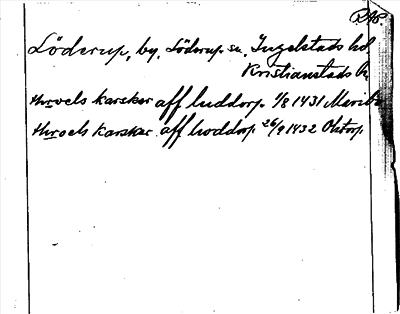 RAP.
Löderup, by, Löderups sn, Ingelstads hd
Kristianstads l.
throels karsker aff luddorp 1/8 1431 Maribo
throels karsker aff lwddorp 26/9 1432 Olstorp